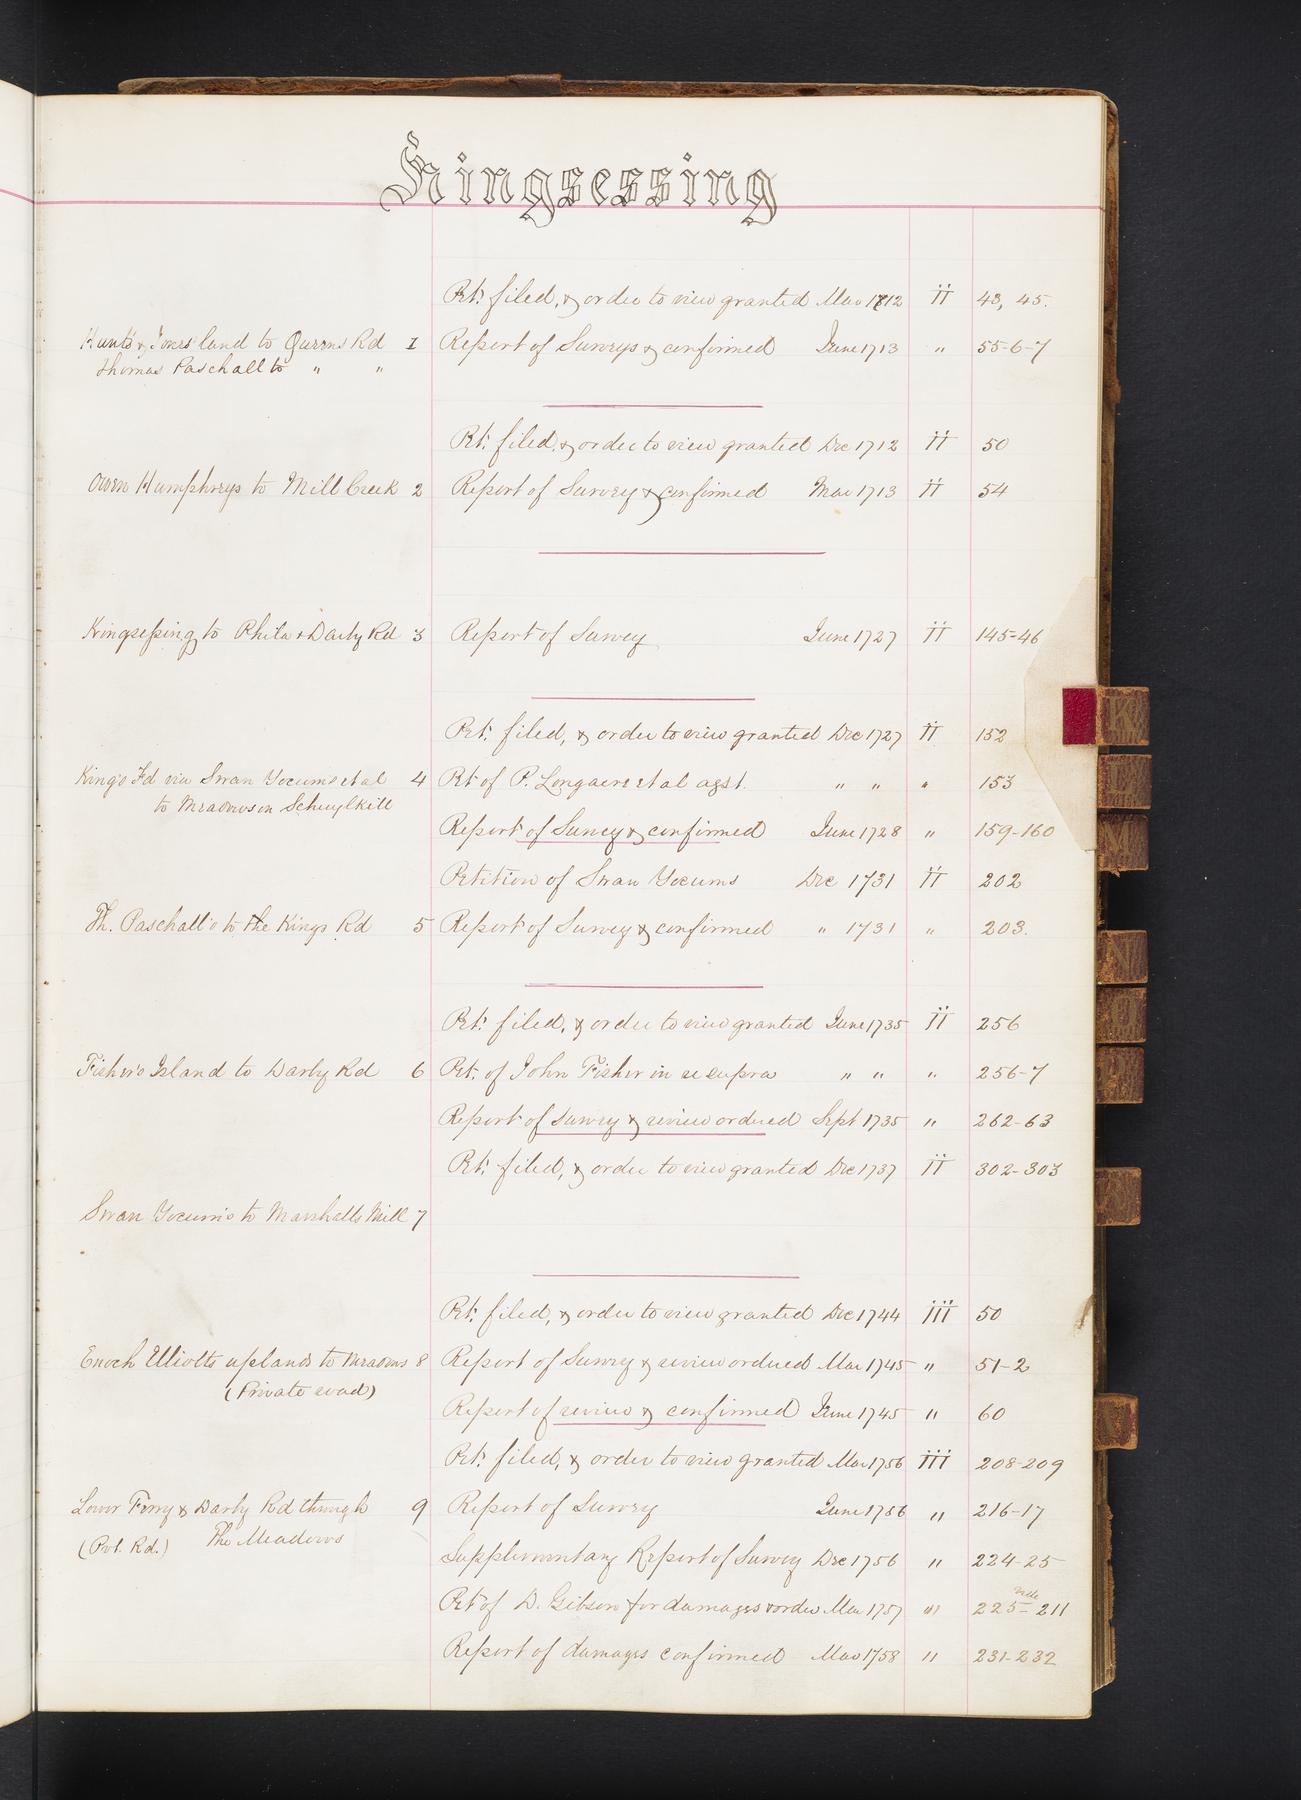 Kingsessing
Pt: filed, & order to view granted Mar 1712 II 43, 45.
Hunts & Jones' land to Queens Rd 1 Report of Surveys & confirmed June 1713 " 55-6-7
Thomas Paschall to " "
Pt: filed, & order to view granted Dec 1712 II 50
Owen Humphreys to Mill Creek 2 Report of Survey & confirmed Mar 1713 II 54
Kingsessing to Phila & Darby Rd 3 Report of Survey June 1727 II 145-46
Pt: filed, & order to view granted Dec 1727 II 152
King's Rd via Swan Yocums et al 4 Pt of P. Longacre et al agst. " " " 153
to Meadows in Schuylkill
Report of Survey & confirmed June 1728 " 159-160
Petition of Swan Yocums Dec 1731 II 202
Th. Paschall's to the Kings Rd 5 Report of Survey & confirmed " 1731 " 203.
Pt: filed, & order to view granted June 1735 II 256
Fisher's Island to Darby Rd 6 Pt. of John Fisher in re supra " " " 256-7
Report of Survey & review ordered Sept 1735 " 262-63
Pt: filed, & order to view granted Dec 1737 II 302-303
Swan Yocum's to Marshalls Mill 7
Pt: filed, & order to view granted Dec 1744 III 50
Enoch Elliotts uplands to Meadows 8 Report of Survey & review ordered Mar 1745 " 51-2
(Private road)
Report of review & confirmed June 1745 " 60
Pt: filed, & order to view granted Mar 1756 III 208-209
Lower Ferry & Darby Rd through 9 Report of Survey June 1756 " 216-17
(Pvt. Rd.) The Meadows
Supplementary Report of Survey Dec 1756 " 224-25
Pt of D. Gibson for damages & order Mar 1757 " 225- 211
Report of damages confirmed Mar 1758 " 231-232
K
L
M
N
O
P
S
W